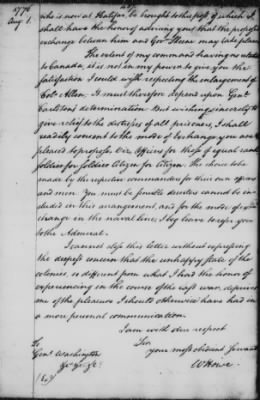 1776
Augt 1.
who is now at Halifax, be brought to this post, of which I
shall have the honor of advising you that the proposed
exchange between them and Govr Skene may take place.
The extent of my command having no relation
to Canada, it is not in my power to give you the
satisfaction I could wish respecting the enlargement of
Colo Allen. It must therefore depend upon Genl
Carleton's determination. But wishing sincerely to
give relief to the distresses of all prisoners, I shall
readily consent to the mode of exchange you are
pleased to propose, Vizt Officers for those of equal rank
soldier for soldier Citizen for Citizen. The choice to be
made by the respective commanders for their own officers
and men. You must be sensible deserters cannot be in-
cluded in this arrangement, and for the mode of
change in the naval line, I beg leave to refer you
to the Admiral.
I cannot close this letter without expressing
the deepest concern that the unhappy state of the
colonies, so different from what I had the honor of
experiencing in the course of the last war, deprives
me of the pleasure I should otherwise have had in
a more personal communication.
I am with due respect
Sir
To
your most obedient Servant
Genl Washington
W Howe